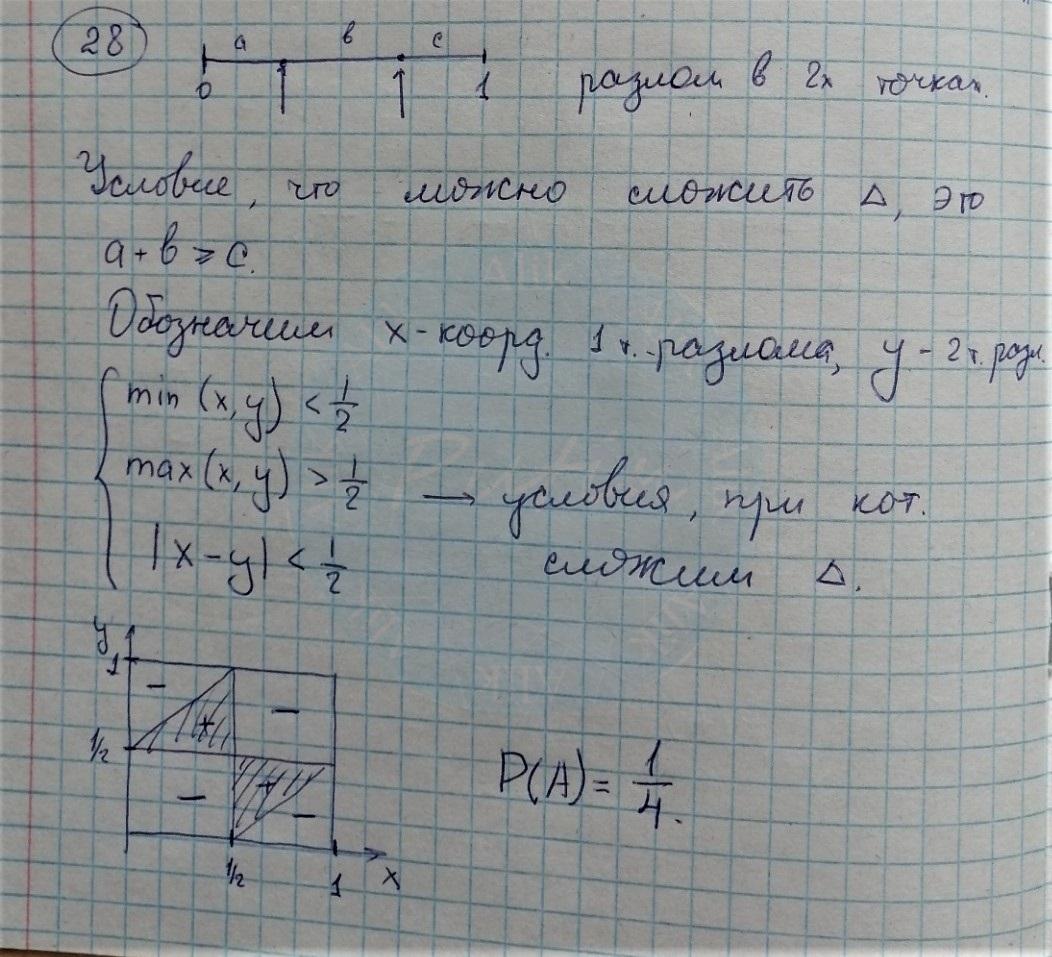 28
a b c
0 1 разлом в 2х точках.
Условие, что можно сложить Δ, это
a + b ≥ c.
Обозначим x - коорд. 1 т. разлома, y - 2 т. разл.
min (x, y) < 1/2
max (x, y) > 1/2 → условия, при кот.
|x - y| < 1/2 сложим Δ.
y
1
- + -
1/2
- + -
P(A) = 1/4.
1/2 1 x